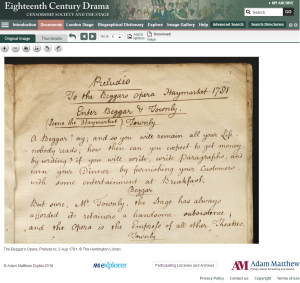 Eighteenth Century Drama
CENSORSHIP, SOCIETY AND THE STAGE
MY ARCHIVE
Search
GO
Introduction Documents London Stage Biographical Dictionary Explore Image Gallery Help Advanced Search Search Directories
Original Image Thumbnails
Download Image
Preludio
To the Beggars Opera Haymarket 1781
Enter Beggar & Townly.
(Scene the Haymarket) Townly.
A Beggar ay, and so you will remain all your Life
nobody reads; how then can you expect to get money
by writing? if you will write, write Paragraphs, and
earn your Dinner by furnishing your Customers
with some entertainment at Breakfast.
Beggar
But sure, Mr Townly, the Stage has always
afforded its retainers a handsome subsistence;
and the Opera is the Empress of all other Theatres.
Townly
The Beggar's Opera; Prelude to. 2 Aug 1781. © The Huntington Library
© Adam Matthew Digital 2016
AM explorer
Participating Libraries and Archives
AM Adam Matthew
Privacy Policy Contact Us Copyright Terms of Use